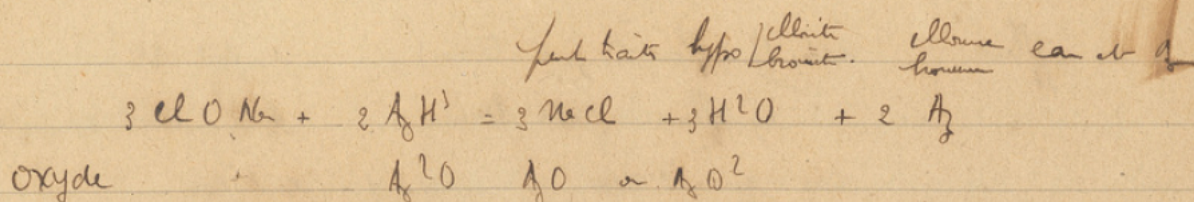 peut traité hypo chlorite bromite. chlorure bromure eau et Az
3 Cl O Na + 2 Az H³ = 3 Na Cl + 3 H²O + 2 Az
oxyde Az²O AzO ou AzO²